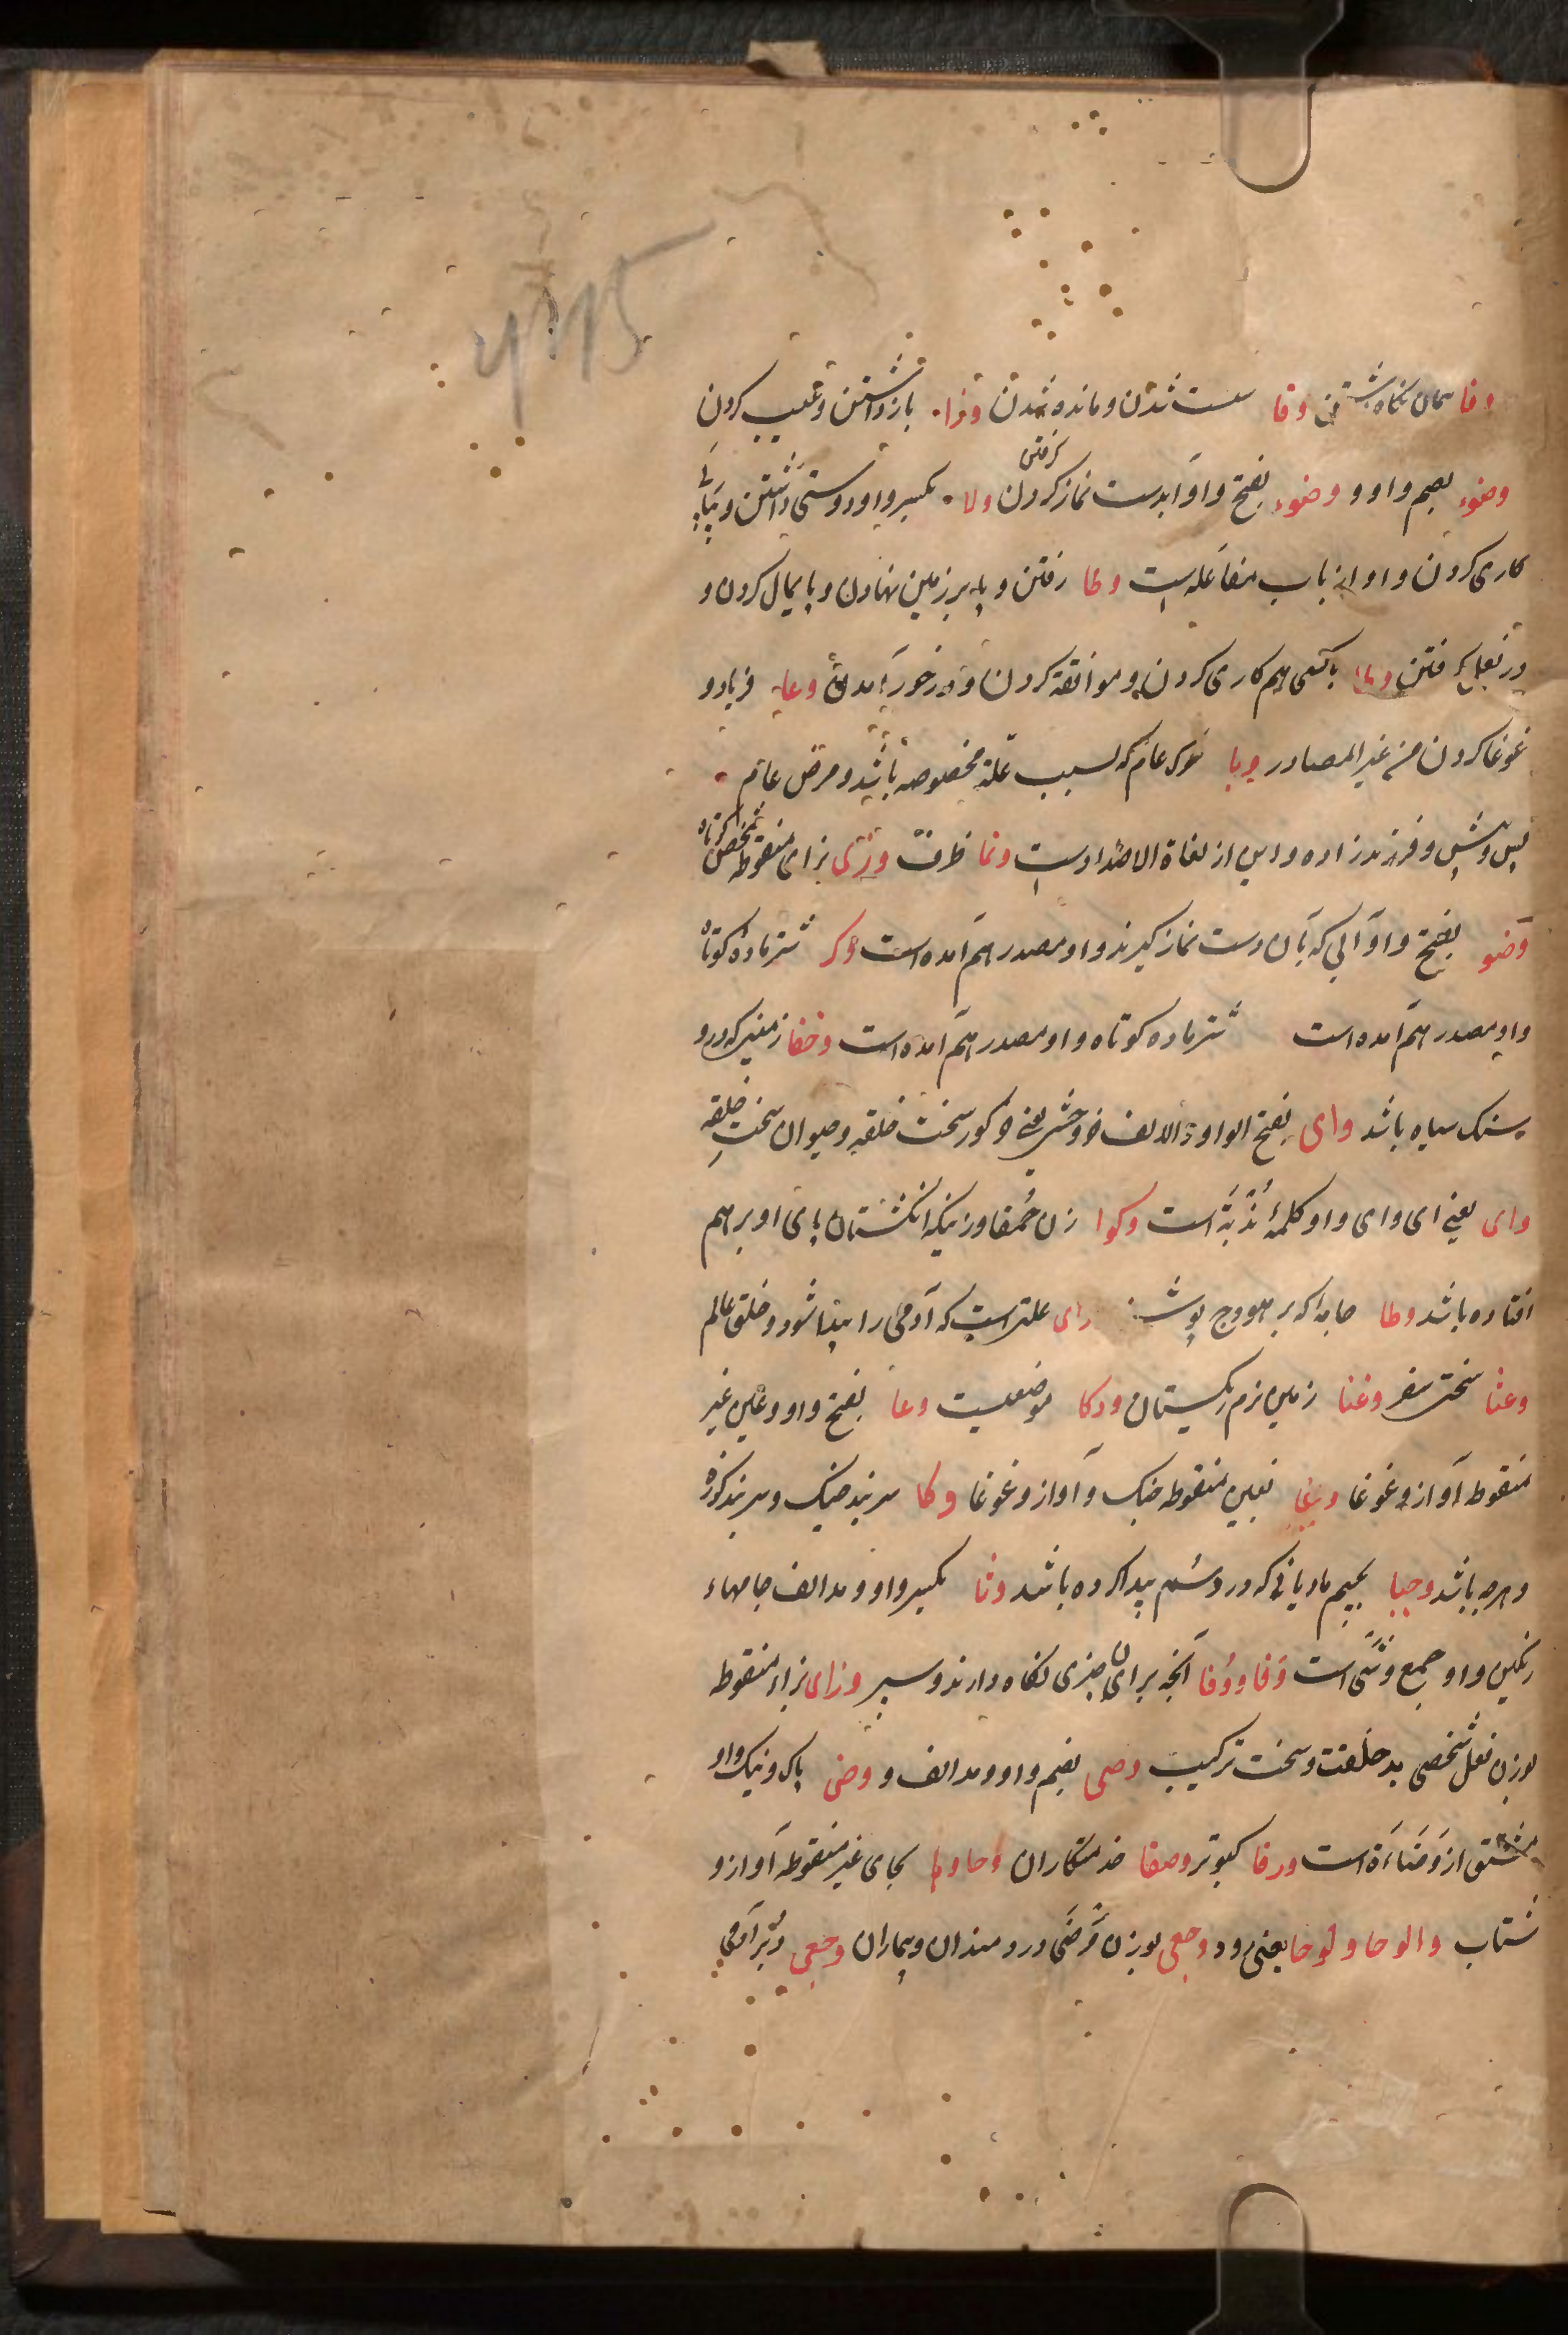 وفا پیمان نگاه داشتن ونا سست شدن و مانده شدن وذاء بازداشتن و عیب کردن
وضوء بضم واو و وضوء بفتح واو آبدست نماز کردن گرفتن ولاء بکسر واو دوستی داشتن و پیاپی
کاری کردن و او از باب مفاعله است وطا رفتن و پای بر زمین نهادن و پایمال کردن و
در بغل گرفتن وطاء با کسی هم کاری کردن و موافقة کردن و در خور آمدن وعاء فریاد و
غوغا کردن من غیر المصادر وبا مرک عام که بسبب علة مخصوصه باشد و مرض عام
پس و پیش و فرزند زاده و این از لغاة الاضداد است ونا ظرف وزی بزای منقوطه شخص کوتاه
وضو بفتح واو آبی که بآن دست نماز گیرند و او مصدر هم آمده است وکر شتر ماده کوتاه
و او مصدر هم آمده است شتر ماده کوتاه و او مصدر هم آمده است وخفا زمینی که درو
سنک سیاه باشد وای بفتح الواو و الالف خر وحشی یعنی خر کور سخت خلقه و حیوان سخت خلقه
وای یعنی ای وای و او کلمهٔ ندبة است وکوا زن حمقا و زنیکه انکشتان پای او بر هم
افتاده باشد وطا جامه که بر هودج پوشند رای علتی است که آدمی را پیدا شود و خلق عالم
وعثا سختی سفر وعثا زمین نرم ریکستان ودکا موضعیست وعا بفتح واو و عین غیر
منقوطه آواز و غوغا وغا بغین منقوطه جنک و آواز و غوغا وکا سربند خیک و سربند کوزه
و هرچه باشد وجیا بجیم مادیانی که درد سم پیدا کرده باشد وشا بکسر واو و مد الف جامهاء
رنکین و او جمع وشی است وقا و وُقا آنچه برای آن چیزی نکاه دارند و سپر وزای بزاء منقوطه
بوزن فعل شخصی بد خلقت و سخت ترکیب وضی بضم واو و مد الف و وضی پاک و نیک و او
مشتق از وضاءة است ورقا کبوتر وصفا خدمتکاران وحا وحا بحای غیر منقوطه آواز و
شتاب والوحا و لوحا یعنی زود وجعی بوزن مرضی دردمندان و بیماران وجعی دبر آدمی